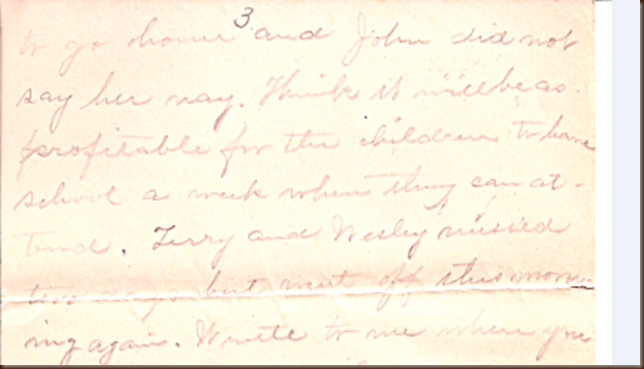 3
to go home and John did not
say her nay. Think it will be as
profitable for the children to have
school a week when they can at-
tend. Terry and Wesley missed
two days but went off this morn-
ing again. Write to me when you